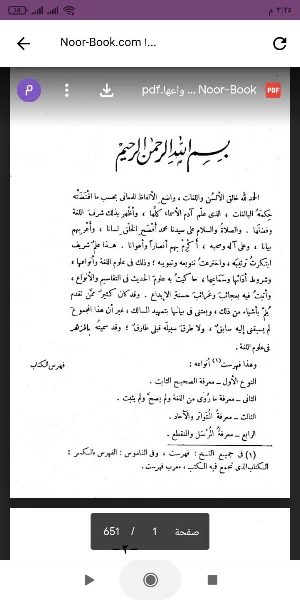 ٣:٢٥ م
Noor-Book.com ا...
Noor-Book ... واعها.pdf
PDF
بسم الله الرحمن الرحيم
الحمد لله خالق الألسن واللغات، واضع الألفاظ للمعاني بحسب ما اقتضته
حكمه البالغات، الذي علم آدم الأسماء كلها، وأظهر بذلك شرف اللغة
وفضلها. والصلاة والسلام على سيدنا محمد أفصح الخلق لسانا، وأعربهم
بيانا، وعلى آله وصحبه، أكرم بهم أنصارا وأعوانا. هذا علم شريف
ابتكرت ترتيبه، واخترعت تنويعه وتبويبه؛ وذلك في علوم اللغة وأنواعها،
وشروط أدائها وسماعها، حاكيت به علوم الحديث في التقاسيم والأنواع،
وأتيت فيه بعجائب وغرائب حسنة الإبداع. وقد كان كثير ممن تقدم
يلم بأشياء من ذلك، ويعتني في بيانها بتمهيد المسالك، غير أن هذا المجموع
لم يسبقني إليه سابق، ولا طرق سبيله قبلي طارق؛ وقد سميته بالمزهر
في علوم اللغة.
وهذا فهرست (١) أنواعه:
فهرس الكتاب
النوع الأول – معرفة الصحيح الثابت.
الثاني – معرفة ما روى من اللغة ولم يصح ولم يثبت.
الثالث – معرفة المتواتر والآحاد.
الرابع – معرفة المرسل والمنقطع.
(١) في جميع النسخ: فهرست، وفي القاموس: الفهرس بالكسر:
الكتاب الذي تجمع فيه الكتب، معرب فهرست.
صفحة 1 / 651
–٢–